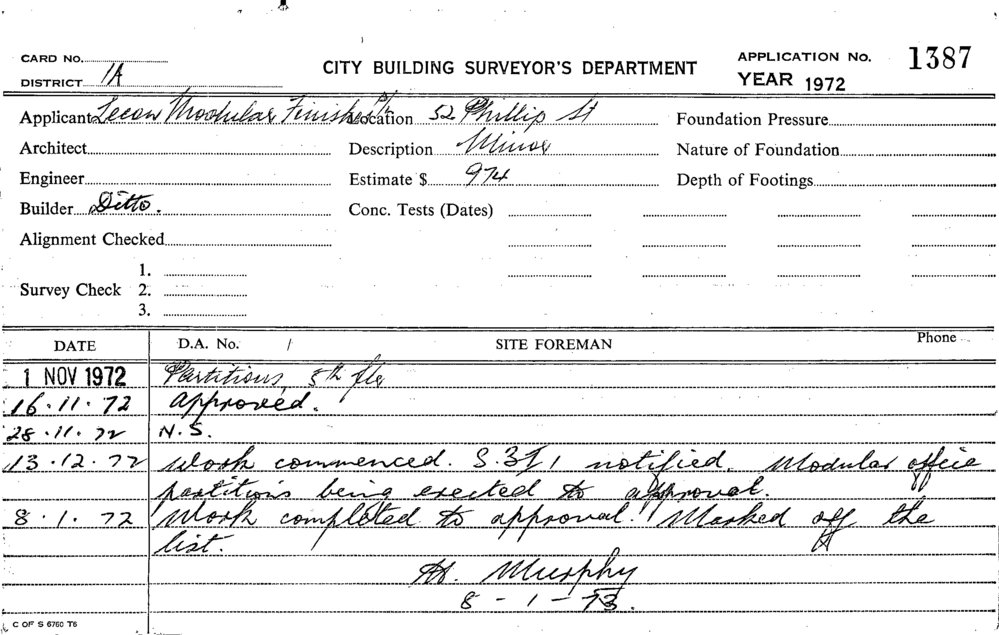 CARD No.
CITY BUILDING SURVEYOR'S DEPARTMENT
APPLICATION No. 1387
DISTRICT 1A
YEAR 1972
Applicant Lecon Modular Finishes P/L Location 52 Phillip St Foundation Pressure
Architect Description Minor Nature of Foundation
Engineer Estimate $ 974 Depth of Footings
Builder Ditto. Conc. Tests (Dates)
Alignment Checked
1.
Survey Check 2.
3.
DATE D.A. No. / SITE FOREMAN Phone
1 NOV 1972 Partitions 8th flr
16.11.72 Approved.
28.11.72 N.S.
13.12.72 Work commenced. notified. Modular office
partitions being erected to approval.
8.1.72 Work completed to approval. Marked off the
list.
Murphy
8-1-73.
C OF S 6760 T6